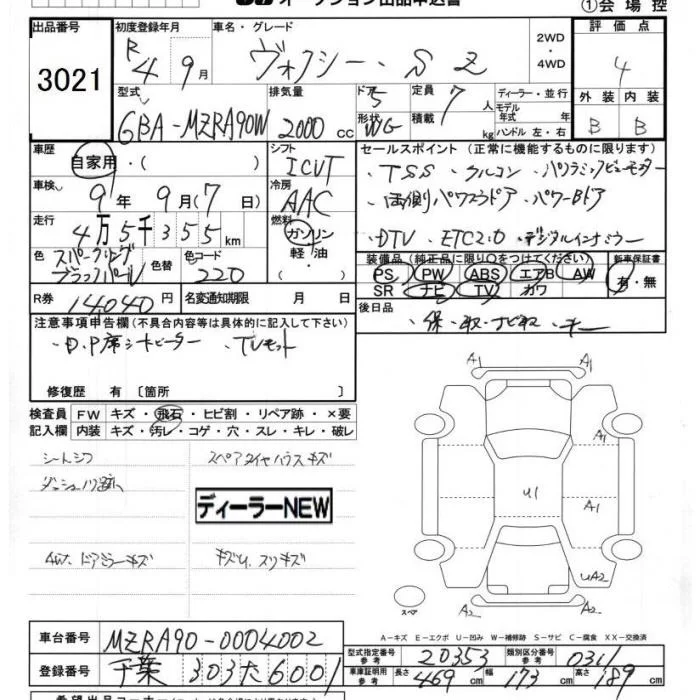 オークション出品申込書
①会場控
出品番号 初度登録年月 車名・グレード 評価点
3021 R 4 9月 ヴォクシー・S Z 2WD ・ 4WD 4
型式 排気量 ドア 5 定員 7人 ディーラー・並行 外装 内装
6BA-MZRA90W 2000cc 形状 WG 積載 kg モデル年式 年 ハンドル 左・右 B B
車歴 自家用・( ) シフト ICVT セールスポイント (正常に機能するものに限ります)
・TSS・クルコン・パノラミックビューモニター
車検 9年 9月(7日) 冷房 AAC ・両側パワスラドア・パワーBドア
走行 4万5千355km 燃料 ガソリン 軽油 ・DTV・ETC2.0・デジタルインナミラー
色 スパークリングブラックパール 色替 色コード 220
装備品 (純正品に限り○をつけてください) 新車保証書
PS PW ABS エアB AW 有・無
SR ナビ TV カワ
R券 14040円 名変通知期限 月 日
後日品 ・保・取・ナビ取・キー
注意事項申告欄 (不具合内容等は具体的に記入して下さい)
・D.P席シートヒーター ・TVキット
修復歴 有 〔箇所 〕
検査員 FW キズ・飛石・ヒビ割・リペア跡・×要
記入欄 内装 キズ・汚レ・コゲ・穴・スレ・キレ・破レ
シートシワ スペアタイヤハウスキズ
ダッシュノリ跡
ディーラーNEW
4W. ドアミラーキズ キズU. スリキズ
A1 A1
A1
U1 A1
UA2
スペア A2 A2
A-キズ E-エクボ U-凹み W-補修跡 S-サビ C-腐食 XX-交換済
車台番号 MZRA90-0004002
型式指定番号 参考 20353 類別区分番号 参考 0311
登録番号 千葉 303 た 6001
車庫証明用 参考 長さ 469cm 幅 173cm 高さ 189cm